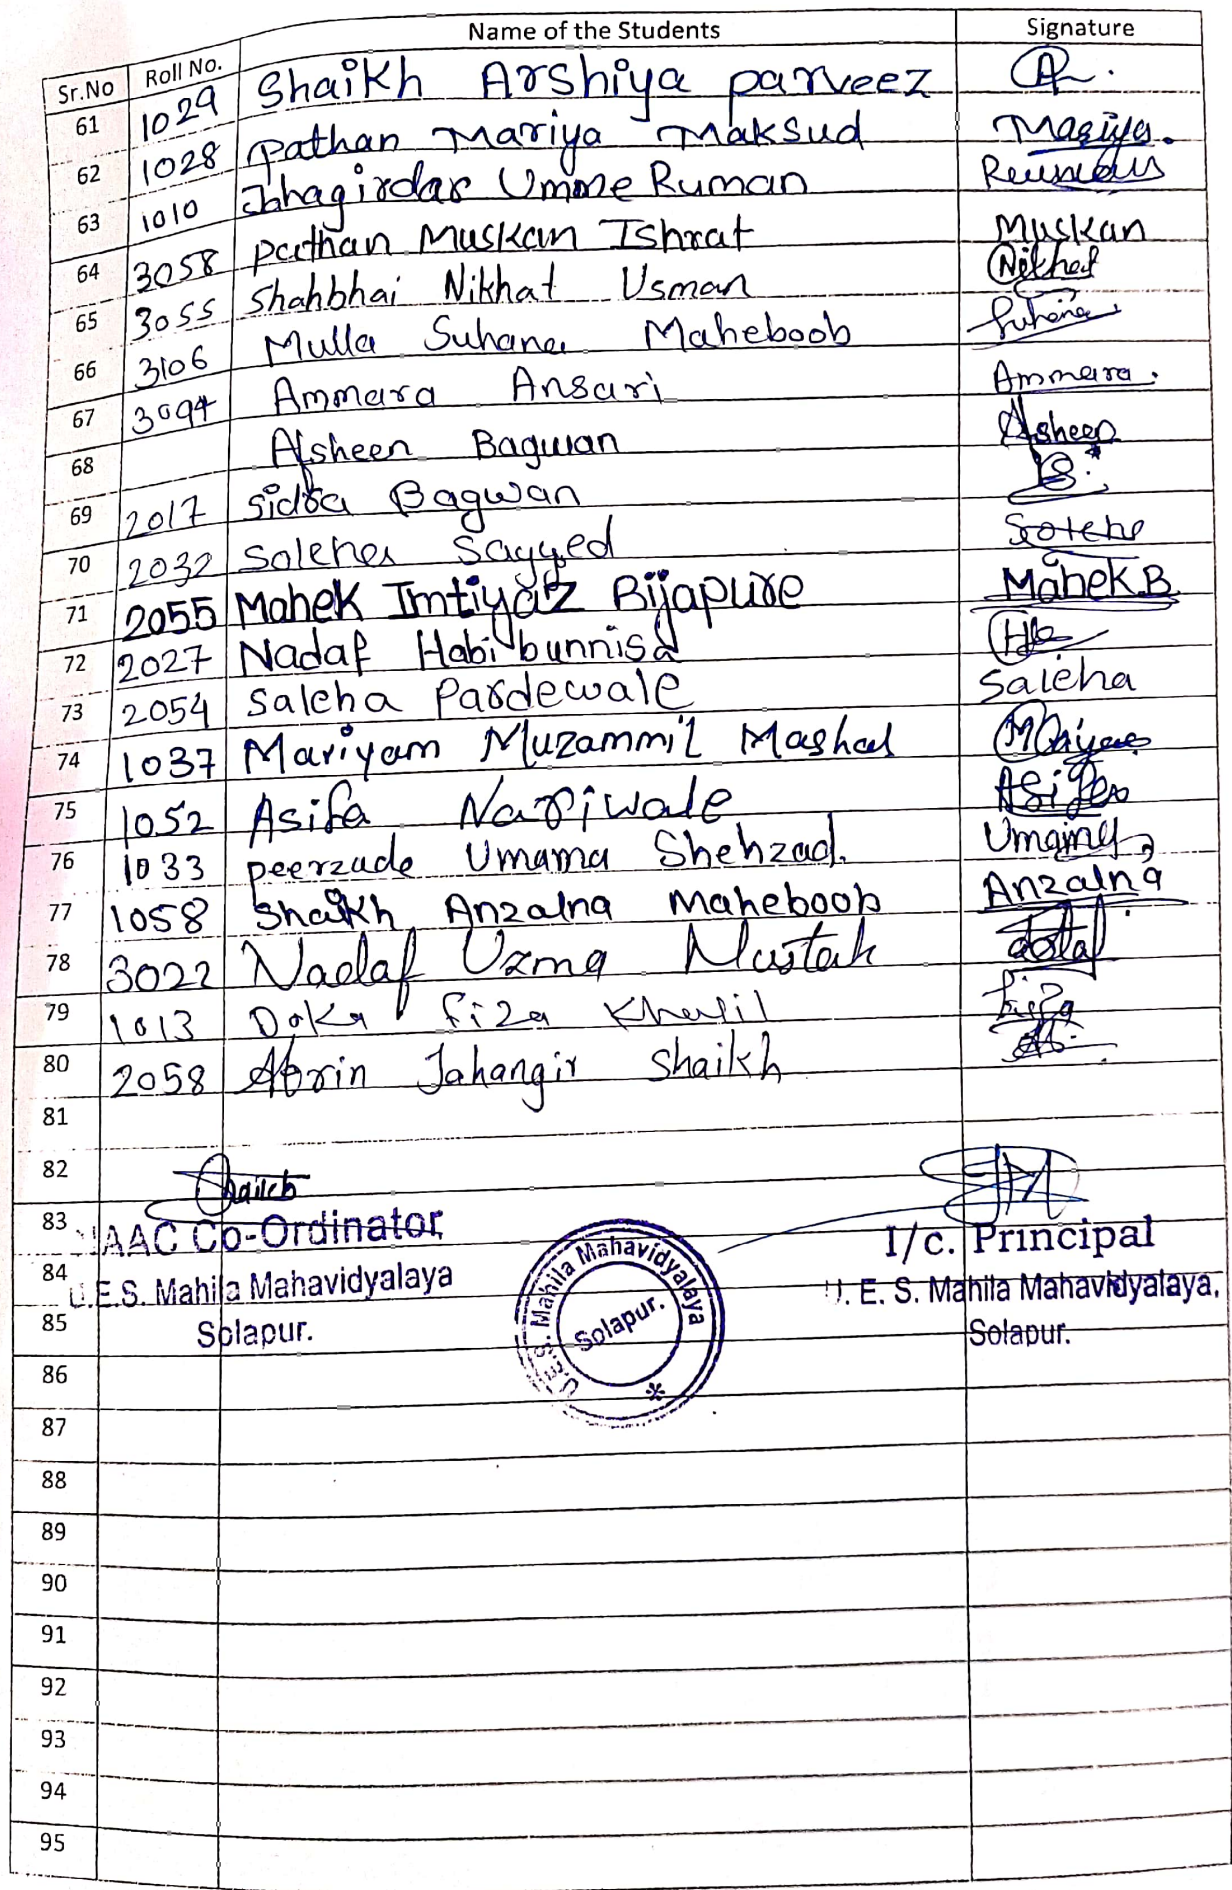 Sr.No Roll No. Name of the Students Signature
61 1029 Shaikh Arshiya parveez
62 1028 pathan Mariya Maksud Mariya.
63 1010 Jahagirdar Umme Ruman
64 3058 pathan Muskan Ishrat Muskan
65 3055 Shahbhai Nikhat Usman Nikhat
66 3106 Mulla Suhana Maheboob Suhana
67 3094 Ammara Ansari Ammara.
68 Afsheen Bagwan Afsheen
69 2017 Sidra Bagwan
70 2032 Saleha Sayyed
71 2055 Mahek Imtiyaz Bijapure Mahek.B
72 2027 Nadaf Habibunnisa
73 2054 Saleha Pardewale Saleha
74 1037 Mariyam Muzammil Mashal
75 1052 Asifa Nariwale Asifa
76 1033 peerzade Umama Shehzad.
77 1058 Shaikh Anzalna Maheboob Anzalna
78 3022 Nadaf Uzma Mustak
79 1013 Doka fiza Khalil
80 2058 Afrin Jahangir Shaikh
81
82
83 NAAC Co-Ordinator I/c. Principal
84 U.E.S. Mahila Mahavidyalaya U.E.S. Mahila Mahavidyalaya Solapur. U. E. S. Mahila Mahavidyalaya,
85 Solapur. Solapur.
86
87
88
89
90
91
92
93
94
95